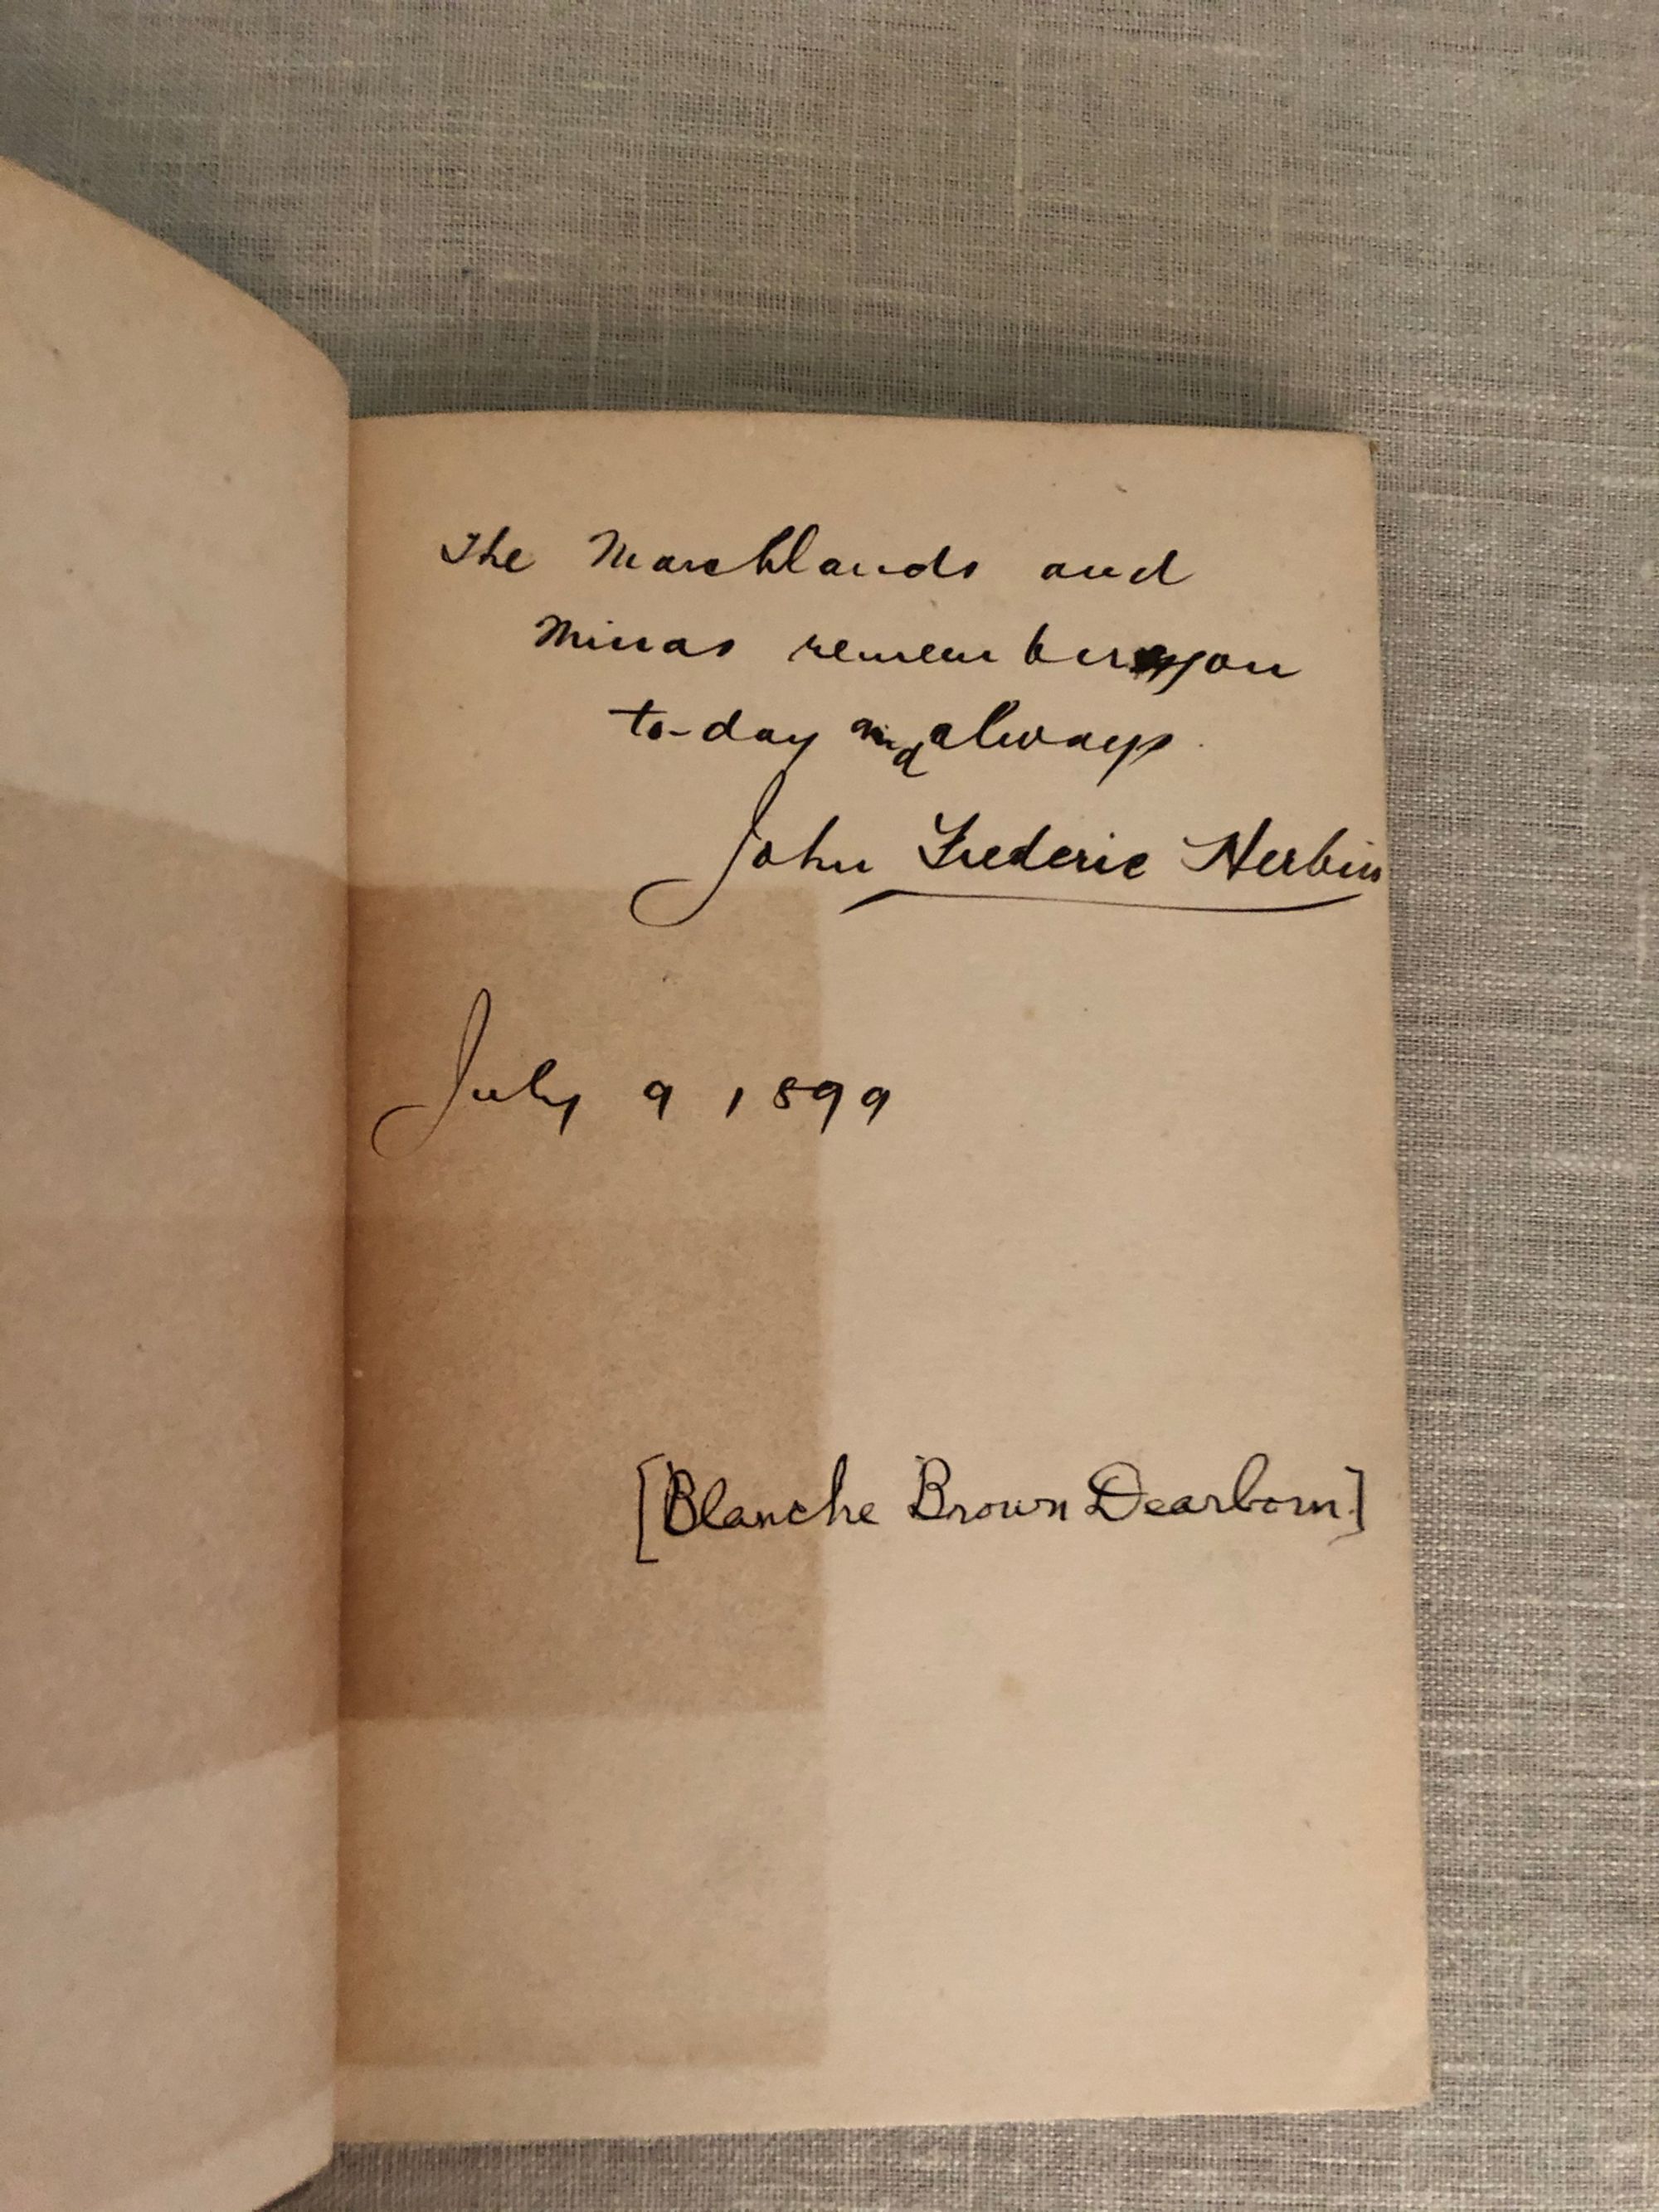 The Marshlands and
Minas remember you
to-day and always.
John Frederic Herbin
July 9 1899
[Blanche Brown Dearborn]